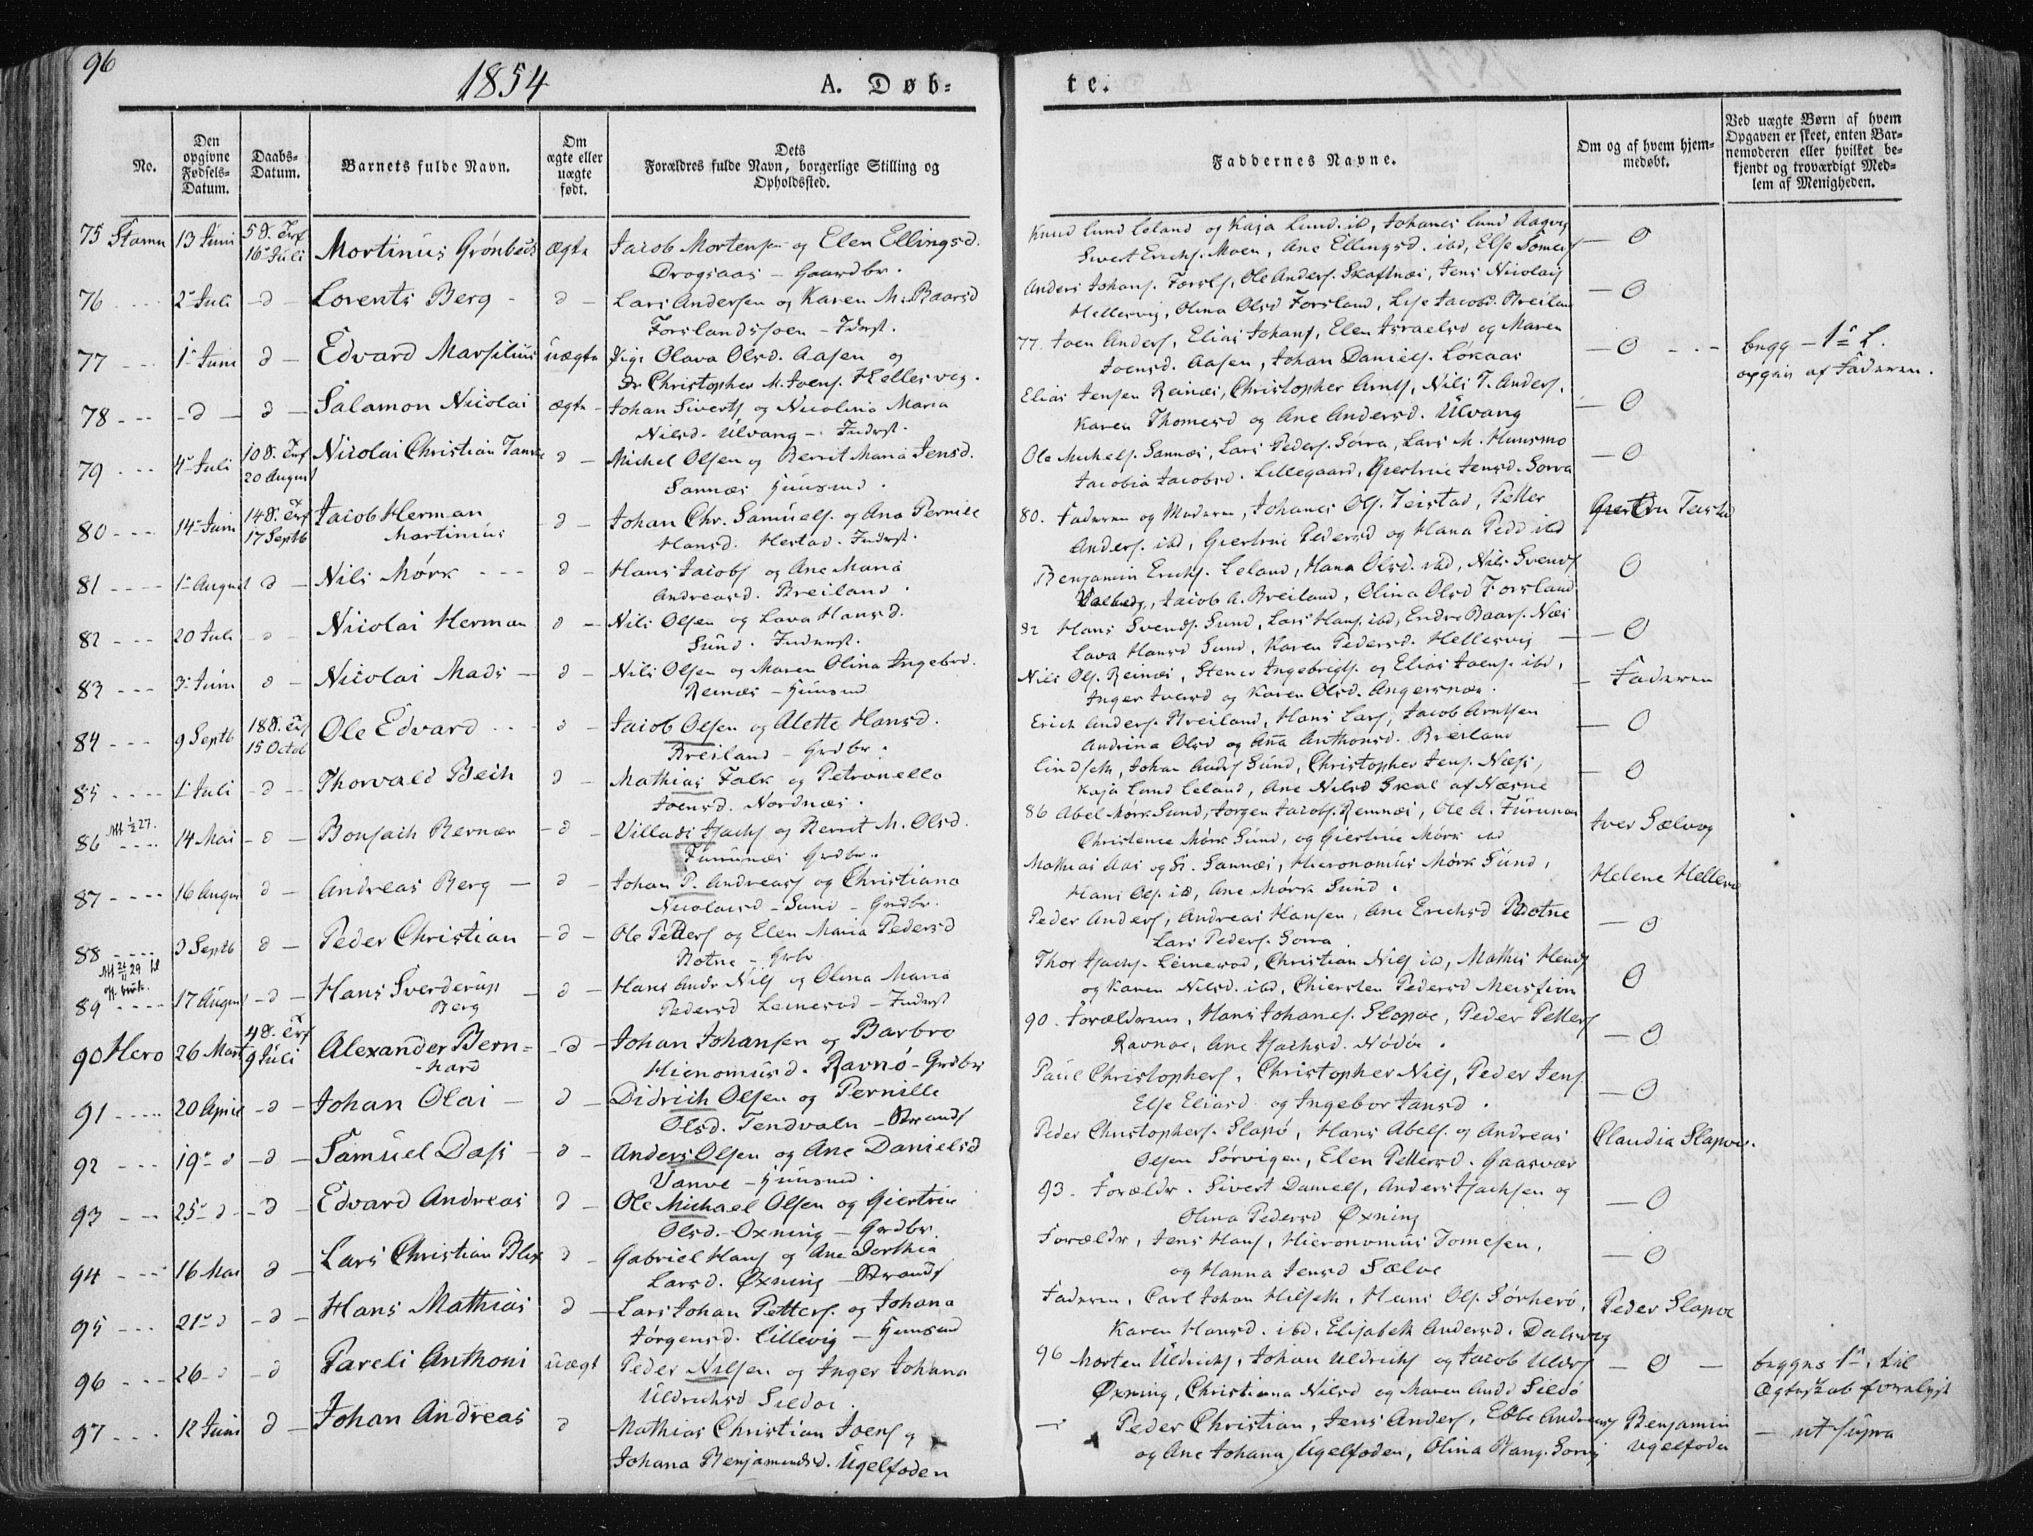 96
1854
A. Døb-
te.
No.
Den opgivne Fødsels-Datum.
Daabs-Datum.
Barnets fulde Navn.
Om ægte eller uægte født.
Dets
Forældres fulde Navn, borgerlige Stilling og
Opholdssted.
Faddernes Navne.
Om og af hvem hjem-
medøbt.
Ved uægte Børn af hvem
Opgaven er skeet, enten Bar-
nemoderen eller hvilket be-
kjendt og troværdigt Med-
lem af Menigheden.
75 Stamn 13 Juni 5 S. Trf 16 Juli Mortinus Grønbech ægte Jacob Mortensen og Elen Ellingsd.
Dragsaas - Gaardbr.
Knud Lund Leland og Kaja Lund ib, Johanes Lund
Sivert Erichs. Moen, Ane Ellingsd. ibd, Else — 0
76 2 Juli - d - Lorents Berg - d - Lars Andersen og Karen M. Baarsd
Forslandssoen - Inderst.
Anders Johans. Forsl, Ole Anders. Skaftnæs, Jens Nicolais
Hellesvig, Olina Olsd Forsland, Lise Jacobsd. Breiland — 0
77 1 Juni d - Edvard Marsilius uægte Pige Olava Olsd. Aasen og
Dr Christopher M. Joens. Hellesvig.
77. Joen Anders, Elias Johans, Elen Israelsd og Maren
Joensd. Aasen, Johan Daniels. Løkaas — 0 - begg - 1ste L.
opgiv af Faderen.
78 - d - d - Salamon Nicolai ægte - Johan Siverts og Nicolina Maria
Nilsd. Ulvang - Inderst.
Elias Jensen Reinæs, Christopher Arnts, Nils T. Anders.
Karen Thomesd og Ane Andersd. Ulvang — 0
79 4 Juli 10 S. Trf 20 August Nicolai Christian d - Michel Olsen og Berrit Maria Jensd.
Sannæs Huusmd.
Ole Michels. Sannæs, Lars Peders. Sorra, Lars M. Huusmo
Jacobia Jacobsd. Lillegaard, Giertrue Jensd. Sorra — 0
80 14 Juni 14 S. Trf 17 Septb Jacob Herman
Martinius - d - Johan Chr. Samuels. og Ana Pernille
Hansd. Hestad. Inderst.
80. Faderen og Moderen, Johanes Ols. Teistad, Petter
Anders. ibd, Giertrue Pedersd og Hana Pedd ibd
81 1 August d - Nils Mørk - d - Hans Jacobs og Ane Maria
Andreasd. Breiland.
Benjamin Erichs. Leland, Hana Olsd. ibd, Nils Svends
Jacob A. Breiland, Olina Olsd Forsland 0
82 20 Juli d Nicolai Herman d - Nils Olsen og Lava Hansd.
Sund. Inderst.
82 Hans Svends. Sund, Lars Hans. ibd, Endre Baars. Næs
Lava Hansd Sund, Karen Pedersd. Hellesvig — 0
83 3 Juni d - Nicolai Mads - d - Nils Olsen og Maren Olina Ingebrd.
Reinæs - Huusmd
Nils Ols. Reinæs, Stener Ingebrigts. og Elias Joens. ibd,
Inger Iversd og Karen Olsd. Angersnæs. - Faderen
84 9 Septb 18 S. Trf 15 Octob Ole Edvard d - Jacob Olsen og Alette Hansd.
Breiland - Grdbr.
Erich Anders. Breiland, Hans Lars, Jacob Arntsen
Andrina Olsd og Ana Anthonsd. Breiland — 0
85 1 Juli - d - Thorvald Beck d - Mathias Falk og Petronella
Joensd. Nordnæs.
Lindseth, Johan Anders Sund, Christopher Jens. Næss,
Kaja Lund Leland, Ane Nilsd Skal af Næsne — 0
Att 1/2 27.
86 14 Mai - d - Bonsach Bernær - d - Villads Isachs og Berrit M. Olsd.
Furunæs Grdbr.
86 Abel Mørk Sund, Jørgen Jacobs. Remnæs, Ole A. Furunæs
Christence Mørk Sund, og Giertrue Mørk ibd Iver Sælvog
87 16 August d - Andreas Berg - d - Johan P. Andreas og Christiana
Nicolaisd - Sund - Grdbr.
Mathias Aas og Sannæs, Hieronomus Mørk Sund,
Hans Ols. ibd, Ane Mørk Sund. Helene Hellesv
88 3 Septb d - Peder Christian - d - Ole Petters og Elen Maria Pedersd
Botne - Grbr
Peder Anders, Andreas Hansen, Ane Erichsd Botne
Lars Peders. Sorra. — 0
89 17 August - d Hans Sverdrup
Berg - d - Hans Andr Nils og Olina Maria
Pedersd Leinesod - Inderst
Thor Isachs. Leinesod, Christian Nils ibd, Mathis Hends
og Karen Nilsd. ibd, Chiersten Pedersd Meisfion 0
90 Hero 26 Mart 4 S. Trf 9 Juli Alexander Bern=
hard - d - Johan Johansen og Barbro
Hienomusd. Ravnø - Grdbr
90. Forælderne, Hans Johanes. Slapøe, Peder Petters
Ravnøe, Ane Isachsd. Nødøe. — 0
91 20 April - d - Johan Olai - d - Didrich Olsen og Pernille
Olsd. Tendvaln - Strands
Paul Christophers, Christopher Nils, Peder Jens.
Else Eliasd og Ingebor Jansd. — 0
92 19 d - d - Samuel Dass - d - Anders Olsen og Ane Danielsd
Vanve - Huusmd.
Peder Christophers. Slapø, Hans Abels. og Andreas
Olsen Sørvigen, Elen Pettersd. Gaasvær Claudia Slapøe.
93 25 d - d Edvard Andreas d - Ole Michael Olsen og Giertrue
Olsd. Oxning - Grdbr.
93. Forældr. Sivert Daniels, Anders Isachsen og
Olina Pedersd Øxning — 0
94 16 Mai d - Lars Christian Blix d - Gabriel Hans og Ane Dorthea
Larsd. Øxning - Strands
Forældr, Jens Hans, Hieronomus Tomesen,
og Hanna Jensd Sælvæ — 0
95 21 d - d - Hans Mathias d - Lars Johan Petters. og Johana
Jørgensd. Lillevig - Huusmd
Faderen, Carl Johan Hilseth, Hans Ols. Sørherø,
Karen Hansd. ibd. Elisabeth Andersd. Dalsvog Peder Slapøe
96 26 - d Pareli Anthoni uægt Peder Nilsen og Inger Johana
Uldrichsd Sildøe.
96 Morten Uldrichs, Johan Uldrichs og Jacob Uldrs
Øxning, Christiana Nilsd og Maren Andd Sildø - 0 - begges 1ste til
Ægteskab forælyst
97 12 Juni d - Johan Andreas d Mathias Christian Joens og
Johana Benjaminsd. Ugelfoden
Peder Christian, Jens Anders, Ebbe Andreas
og Ane Johana Ugelfoden, Olina Bang. Benjamin
Ugelfoden - ut supra